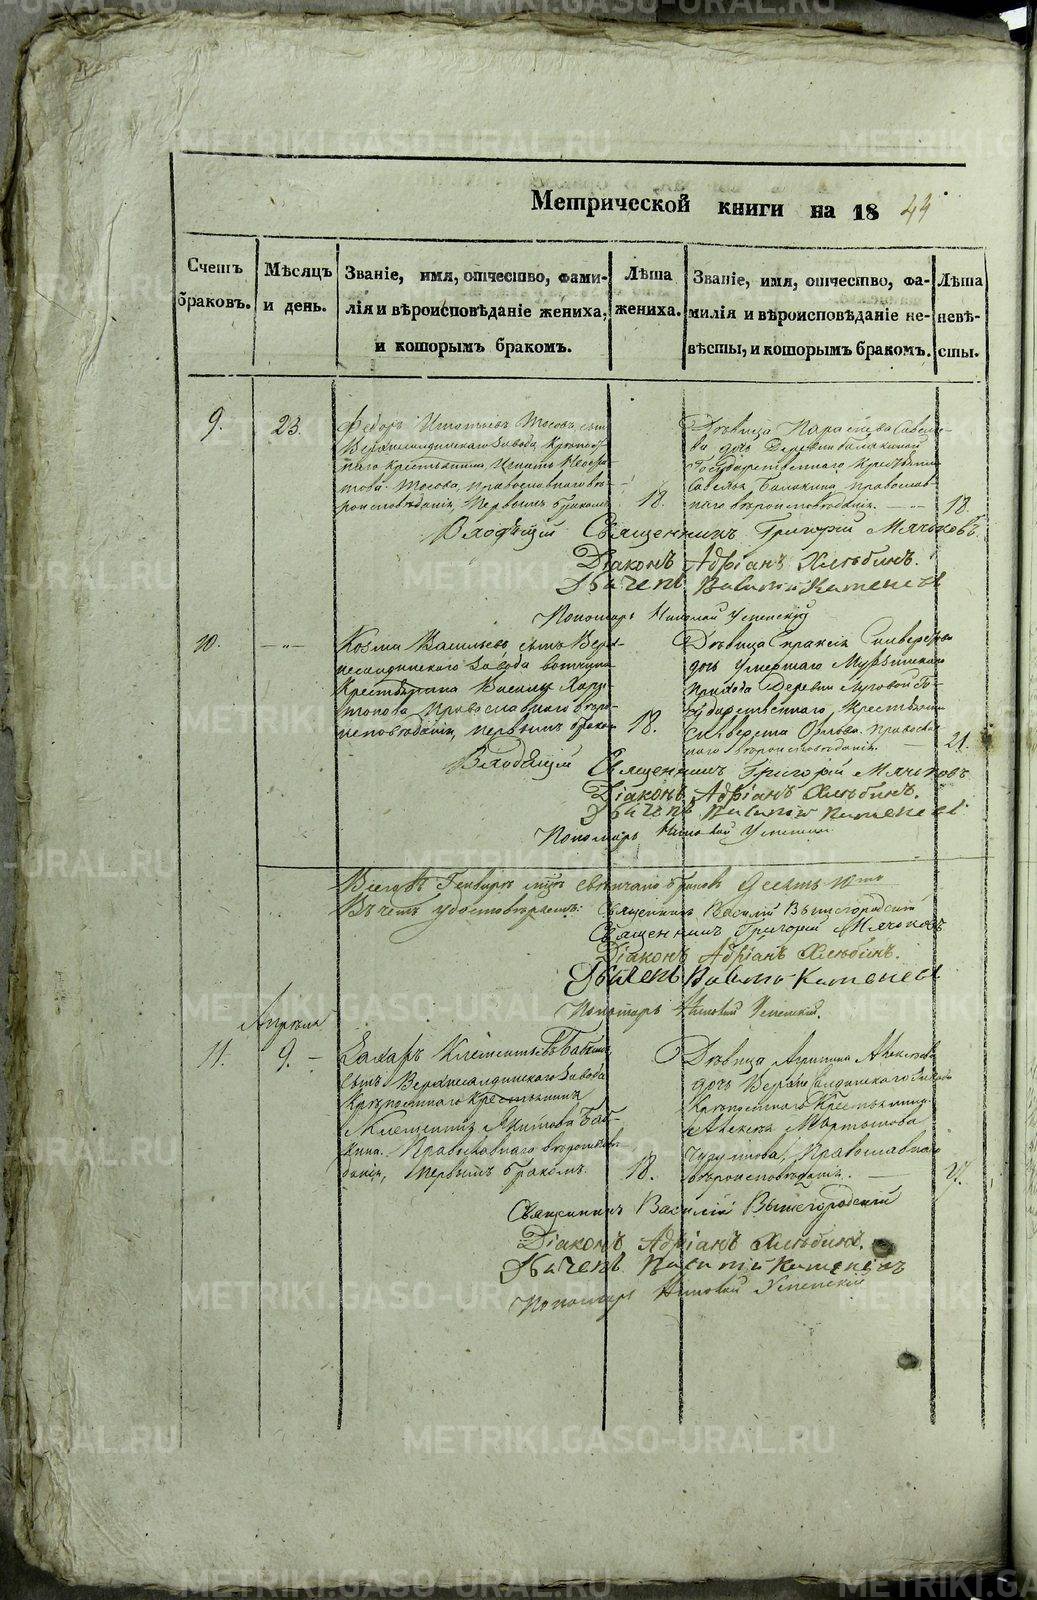 Метрической книги на 1844
Счетъ браковъ.
Мѣсяцъ и день.
Званіе, имя, отчество, фами-
лія и вѣроисповѣданіе жениха,
и которымъ бракомъ.
Лѣта
жениха.
Званіе, имя, отчество, фа-
милія и вѣроисповѣданіе не-
вѣсты, и которымъ бракомъ.
Лѣта
невѣ-
сты.
9.
23.
Федоръ Игнатьевъ Носовъ, сын
Верхнесалдинскаго Завода, Крѣпост
наго Крестьянина, Игнатія
Носова, Православнаго вѣ-
роисповѣданія, Первымъ бракомъ
18.
Дѣвица Параскева Савель-
ва дочь Деревни Балакиной
Государственнаго Крестьянина
Савелья Балакина православ
наго вѣроисповѣданія.
18.
Входящій Священникъ Григорій Мячковъ
Діаконъ Адріанъ Хлѣбинъ.
Дьячекъ Василій Каменевъ
Пономарь Николай Успенскій
10.
—"—
Козма Васильевъ, сынъ Верх-
несалдинскаго Завода вотчина
Крестьянина Василья Хари-
тонова Православнаго вѣро-
исповѣданія, первымъ браком
18.
Дѣвица Евпраксія Силверстова
дочь Умершаго Мурзинскаго
прихода Деревни Луговой Го-
сударственнаго Крестьянина
Силверста Орлова. Православ
наго вѣроисповѣданія.
21.
Входящій Священникъ Григорій Мячковъ
Діаконъ Адріанъ Хлѣбинъ.
Дьячекъ Василій Каменевъ
Пономарь Николай Успенскій
Всего въ Генварѣ мцѣ свѣнчано браковъ Десять 10ть
Въ чемъ удостовѣряемъ: Священникъ Василій Вышегородскій
Священникъ Григорій Мячковъ
Діаконъ Адріанъ Хлѣбинъ.
Дьячекъ Василій Каменевъ
Пономарь Николай Успенскій.
Апрѣля
11.
9. –
Захаръ Клементьевъ Бабкинъ
сынъ Верхнесалдинскаго Завода
Крѣпостнаго Крестьянина
Клементія Никитова Баб-
кина. Православнаго вѣроисповѣ-
данія, Первымъ бракомъ.
18.
Дѣвица Агрипина Алексѣева
дочь Верхнесалдинскаго Завода
Крѣпостнаго Крестьянина
Алексѣя Мартынова
Православнаго
вѣроисповѣданія.
Священникъ Василій Вышегородскій
Діаконъ Адріанъ Хлѣбинъ.
Дьячекъ Василій Каменевъ
Пономарь Николай Успенскій
METRIKI.GASO-URAL.RU